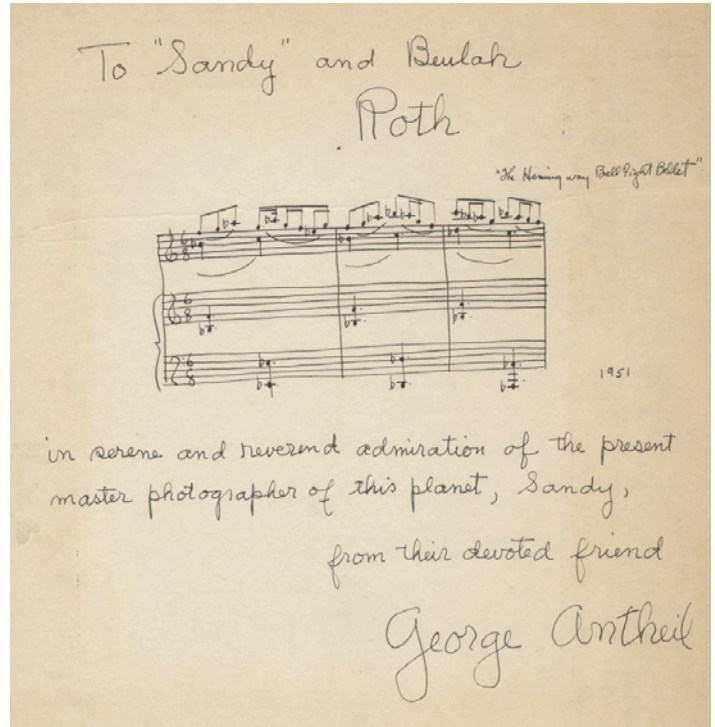 To "Sandy" and Beulah
Roth
"The Hemingway Bull Fight Ballet"
6 8
6 8
6 8
1951
in serene and reverend admiration of the present
master photographer of this planet, Sandy,
from their devoted friend
George Antheil